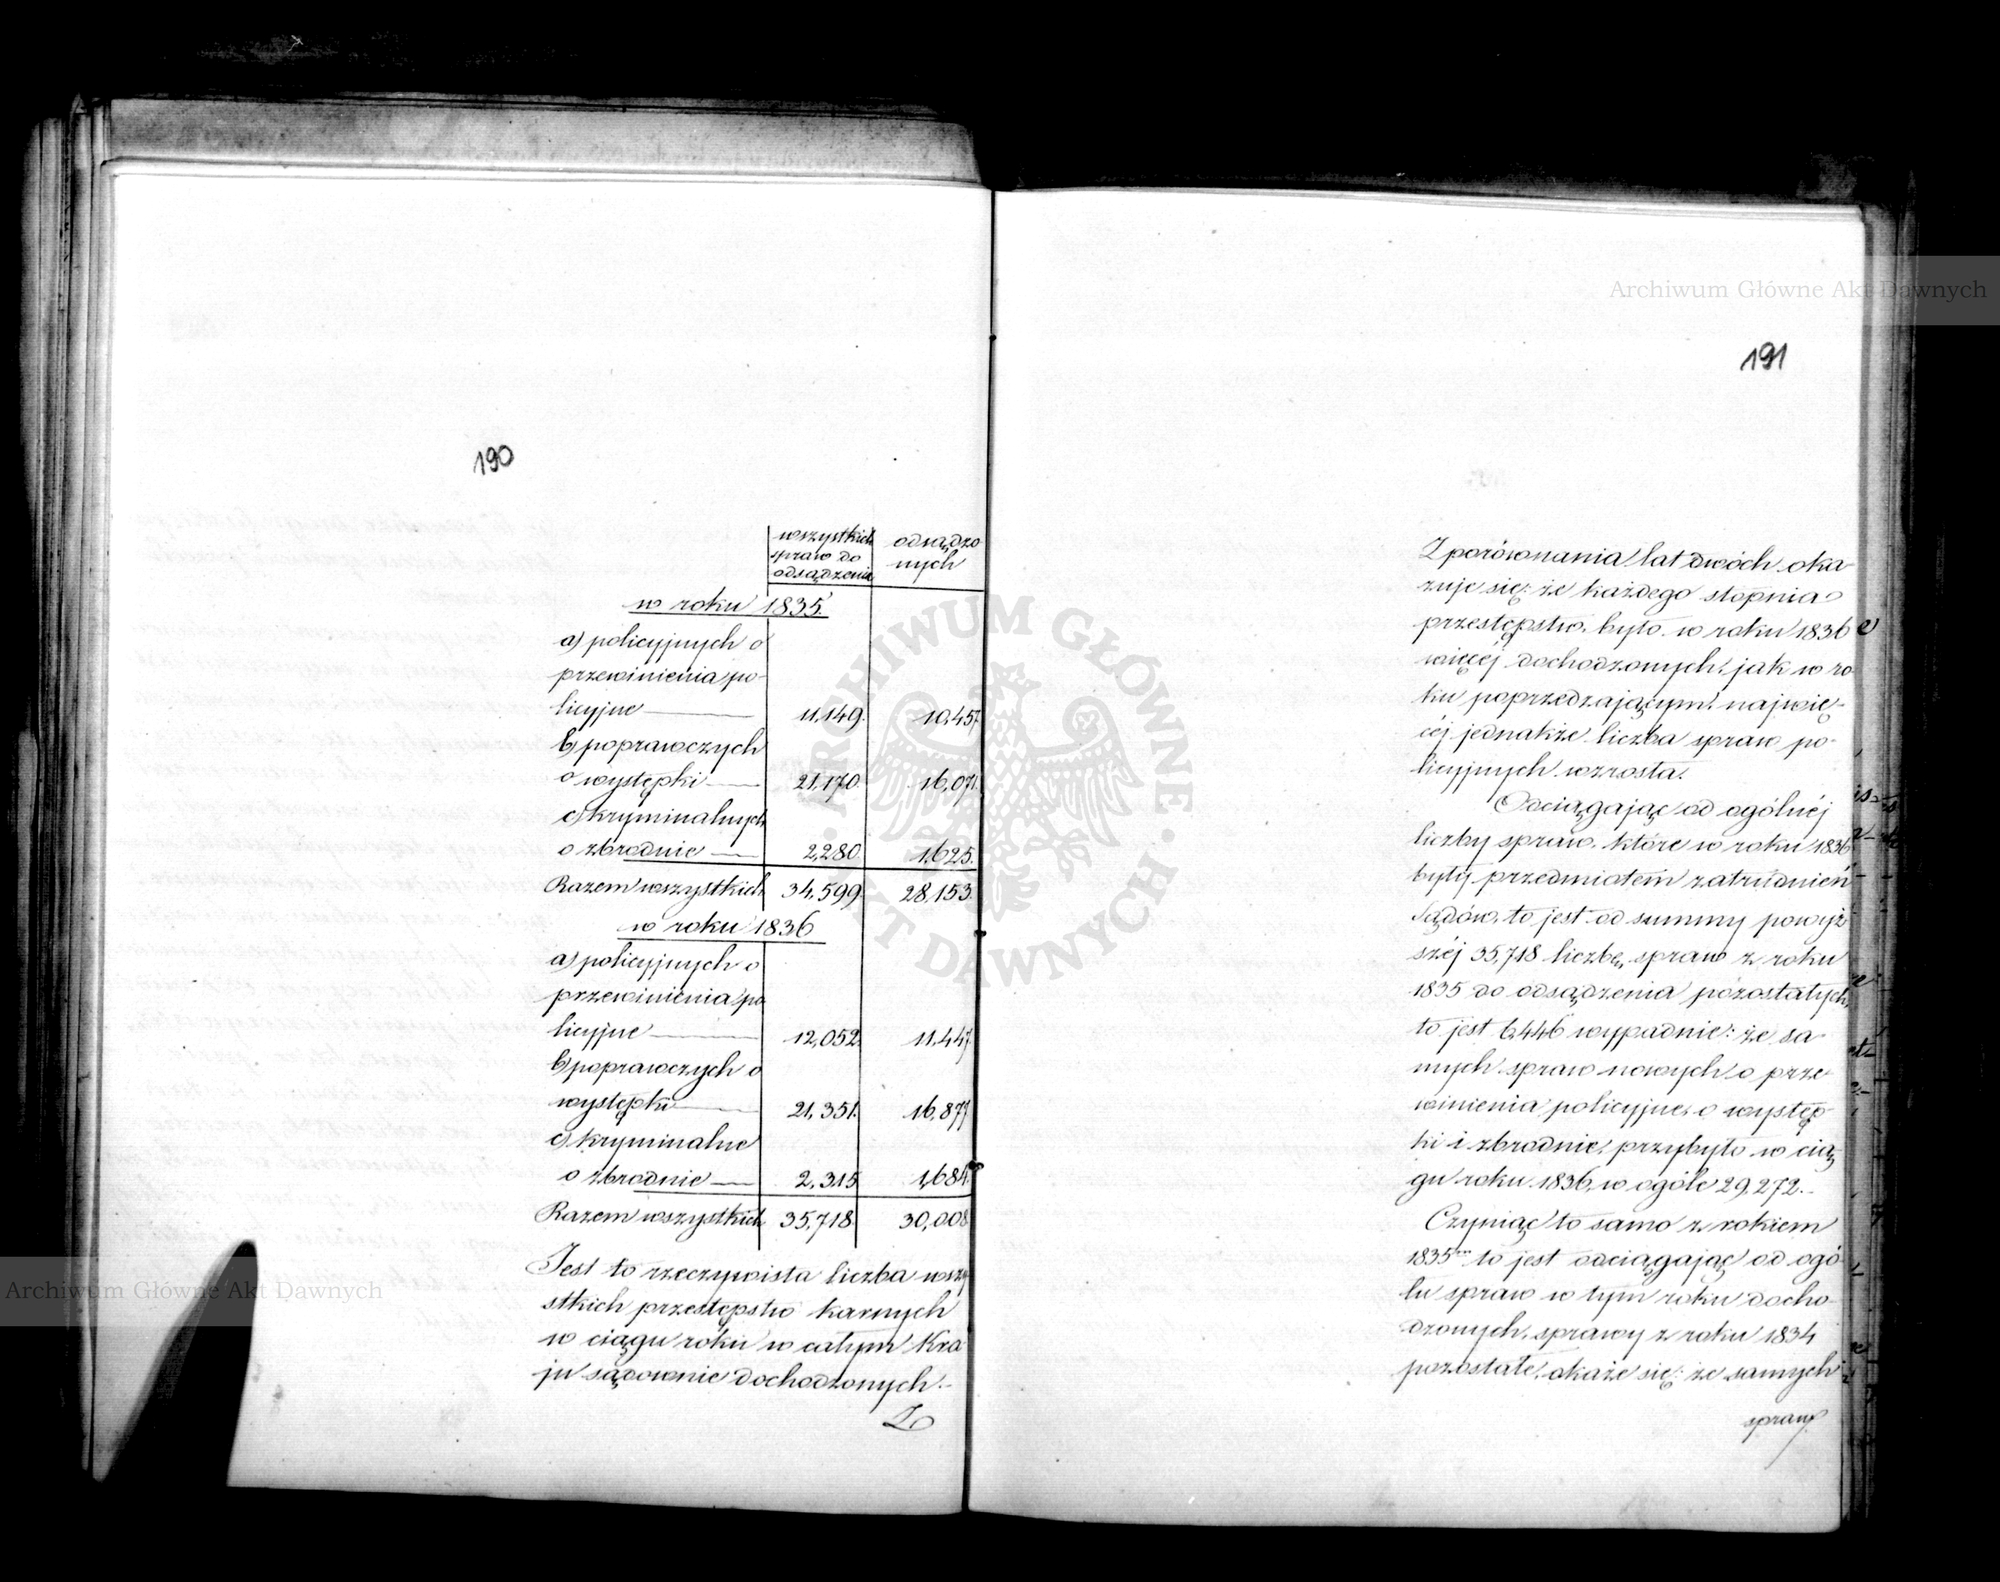 190
wszystkich odsądzo
spraw do nych
odsądzenia
w roku 1835.
a) policyjnych o
przewinienia po-
licyjne 11,149. 10,457
b) poprawczych
o występki 21,170. 16,071.
c) kryminalnych
o zbrodnie 2,280. 1,625.
Razem wszystkich 34,599. 28,153.
w roku 1836
a) policyjnych o
przewinienia po
licyjne 12,052. 11,447.
b) poprawczych o
występki 21,351. 16,877.
c) kryminalne
o zbrodnie 2,315 1,684.
Razem wszystkich 35,718. 30,008
Jest to rzeczywista liczba wszy
stkich przestępstw karnych
w ciągu roku w całym Kra
ju sądownie dochodzonych.-
Z
191
Z porównania lat dwóch oka-
zuje się: że każdego stopnia
przestępstw, było w roku 1836
więcéj dochodzonych, jak w ro
ku poprzedzającym, najwię-
céj jednakże liczba spraw po-
licyjnych wzrosła.
Odciągając od ogólnéj
liczby spraw, które w roku 1836
były przedmiotem zatrudnień
Sądów, to jest od summy powyż
széj 35,718 liczbę spraw z roku
1835 do odsądzenia pozostałych,
to jest 6,446 wypadnie: że sa-
mych spraw nowych o prze-
winienia policyjne, o występ-
ki i zbrodnie, przybyło w cią
gu roku 1836, w ogóle 29,272.-
Czyniąc to samo z rokiem
1835 to jest odciągając od ogó-
łu spraw w tym roku docho-
dzonych, sprawy z roku 1834
pozostałe, okaże się: że samych
spraw
Archiwum Główne Akt Dawnych
Archiwum Główne Akt Dawnych
ARCHIWUM GŁÓWNE
AKT DAWNYCH